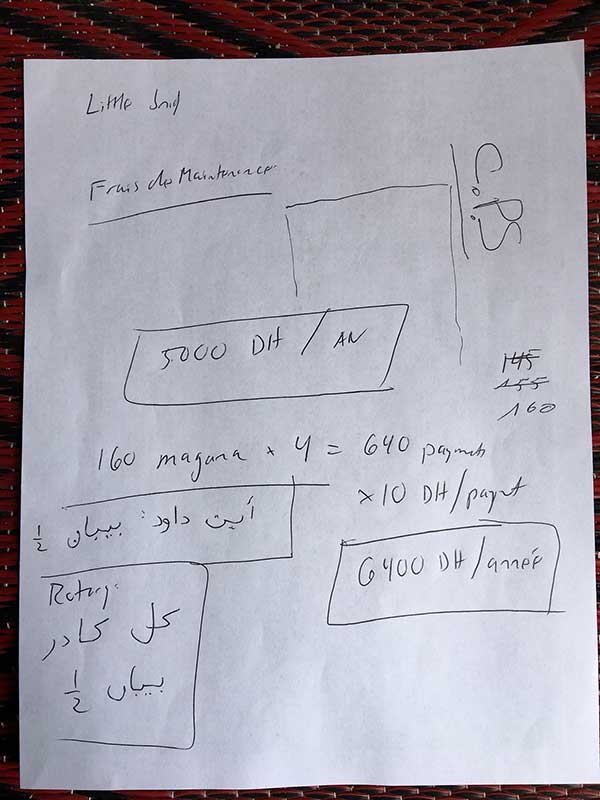 Little
Frais de Maintenance
C.PS
5000 DH / AN
145
155
160
160 magana × 4 = 640 payments
×10 DH/paymt
6400 DH/année
أيت داود: بيبان ½
Rotary:
كل كادر
بيبان ½